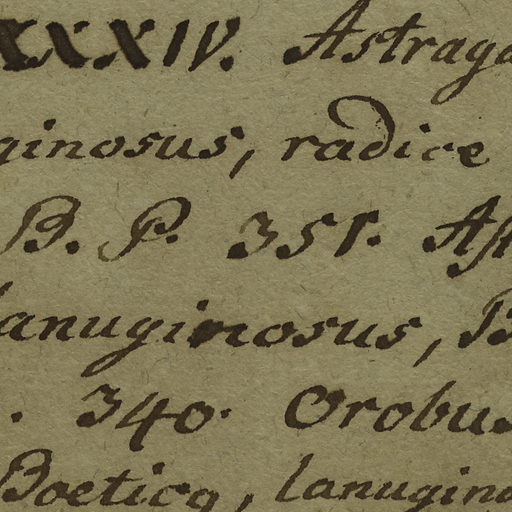 XXXIV. Astraga
ginosus, radice
B. P. 351. Ast
lanuginosus, B
. 340. Orobus
Boetica, lanugino